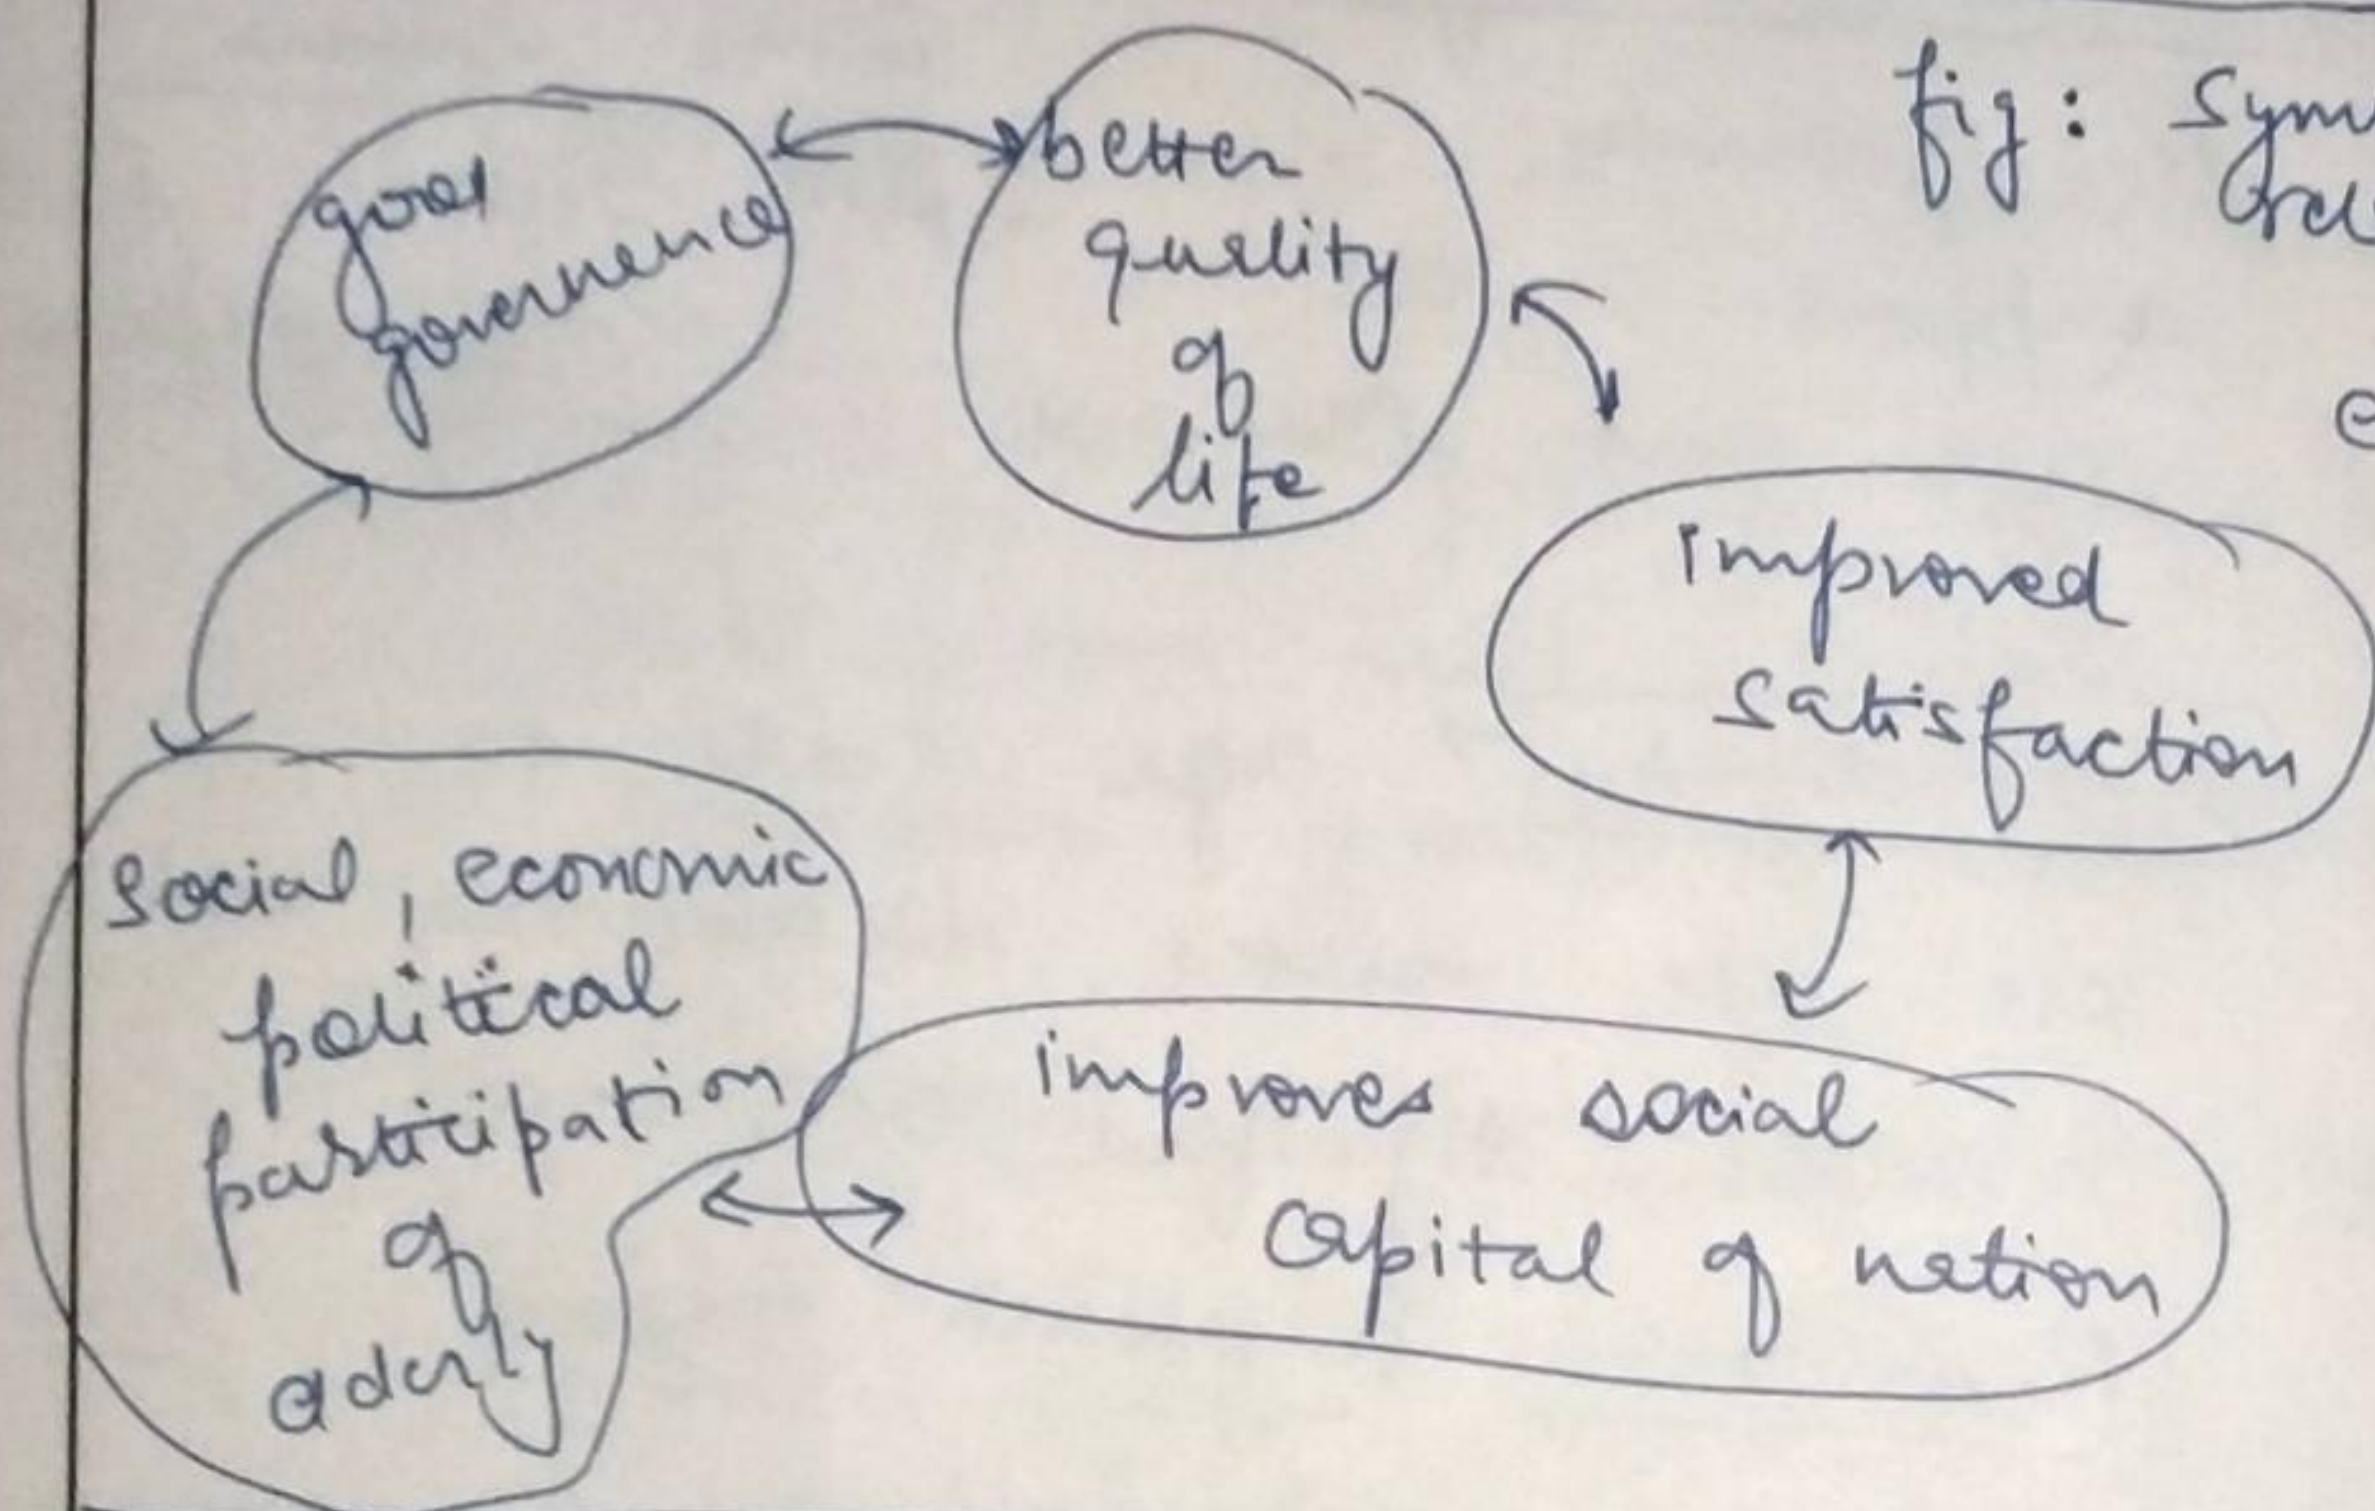 good
governence
better
quality
of
life
fig: Sym
improved
satisfaction
social, economic
political
participation
of
elderly
improves social
capital of nation